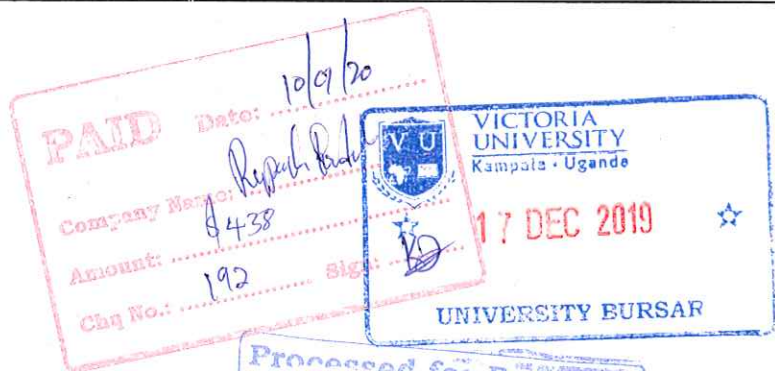 PAID Date: 10/01/20
Company Name:
Amount: $438
Chq No.: 192 Sign:
VU
VICTORIA
UNIVERSITY
Kampala • Uganda
17 DEC 2019
UNIVERSITY BURSAR
Processed for